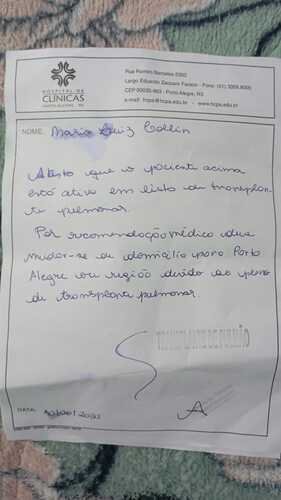 HOSPITAL DE
CLÍNICAS
PORTO ALEGRE RS
Rua Ramiro Barcelos 2350
Largo Eduardo Zaccaro Faraco - Fone (51) 3359.8000
CEP 90035-903 - Porto Alegre, RS
e-mail: hcpa@hcpa.edu.br - www.hcpa.edu.br
NOME: Mario Luiz Collin
Atesto que o paciente acima
está ativo em lista de transplan-
te pulmonar.
Por recomendação médica deve
mudar-se de domicílio para Porto
Alegre ou região devido ao
de transplante pulmonar.
DATA: